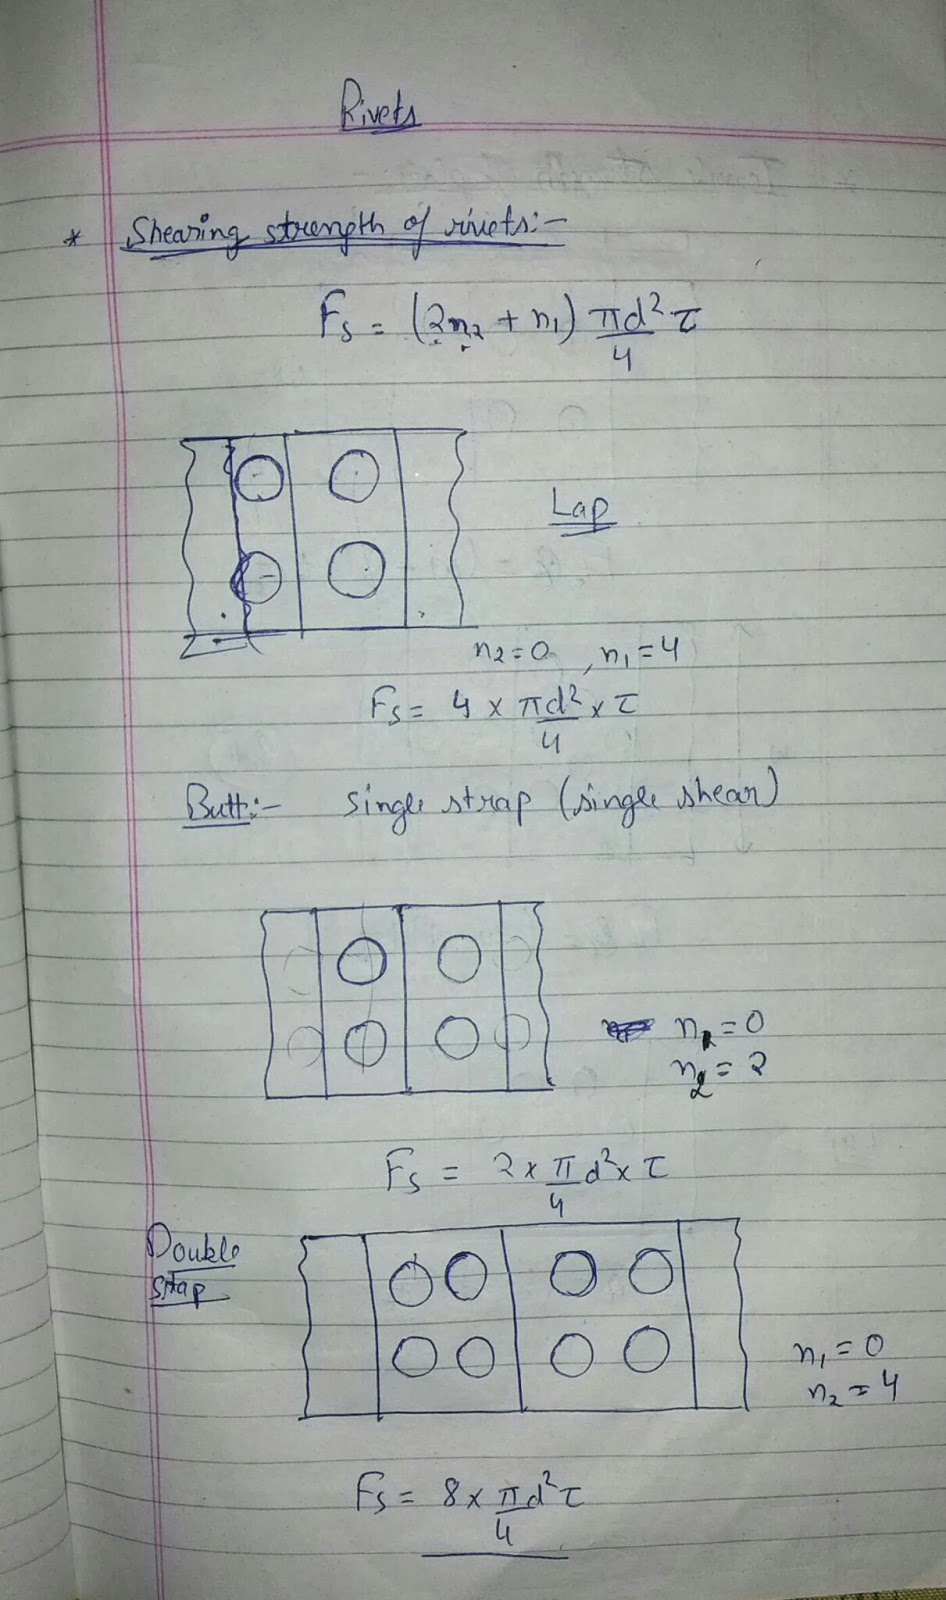 Rivets
* Shearing strength of rivets:-
Fs = (2n₂ + n₁) πd²/4 τ
Lap
n₂=0, n₁=4
Fs = 4 × πd²/4 × τ
Butt:- Single strap (single shear)
n₁=0
n₂=2
Fs = 2 × π/4 d² × τ
Double
strap
n₁=0
n₂=4
Fs = 8 × π/4 d² τ